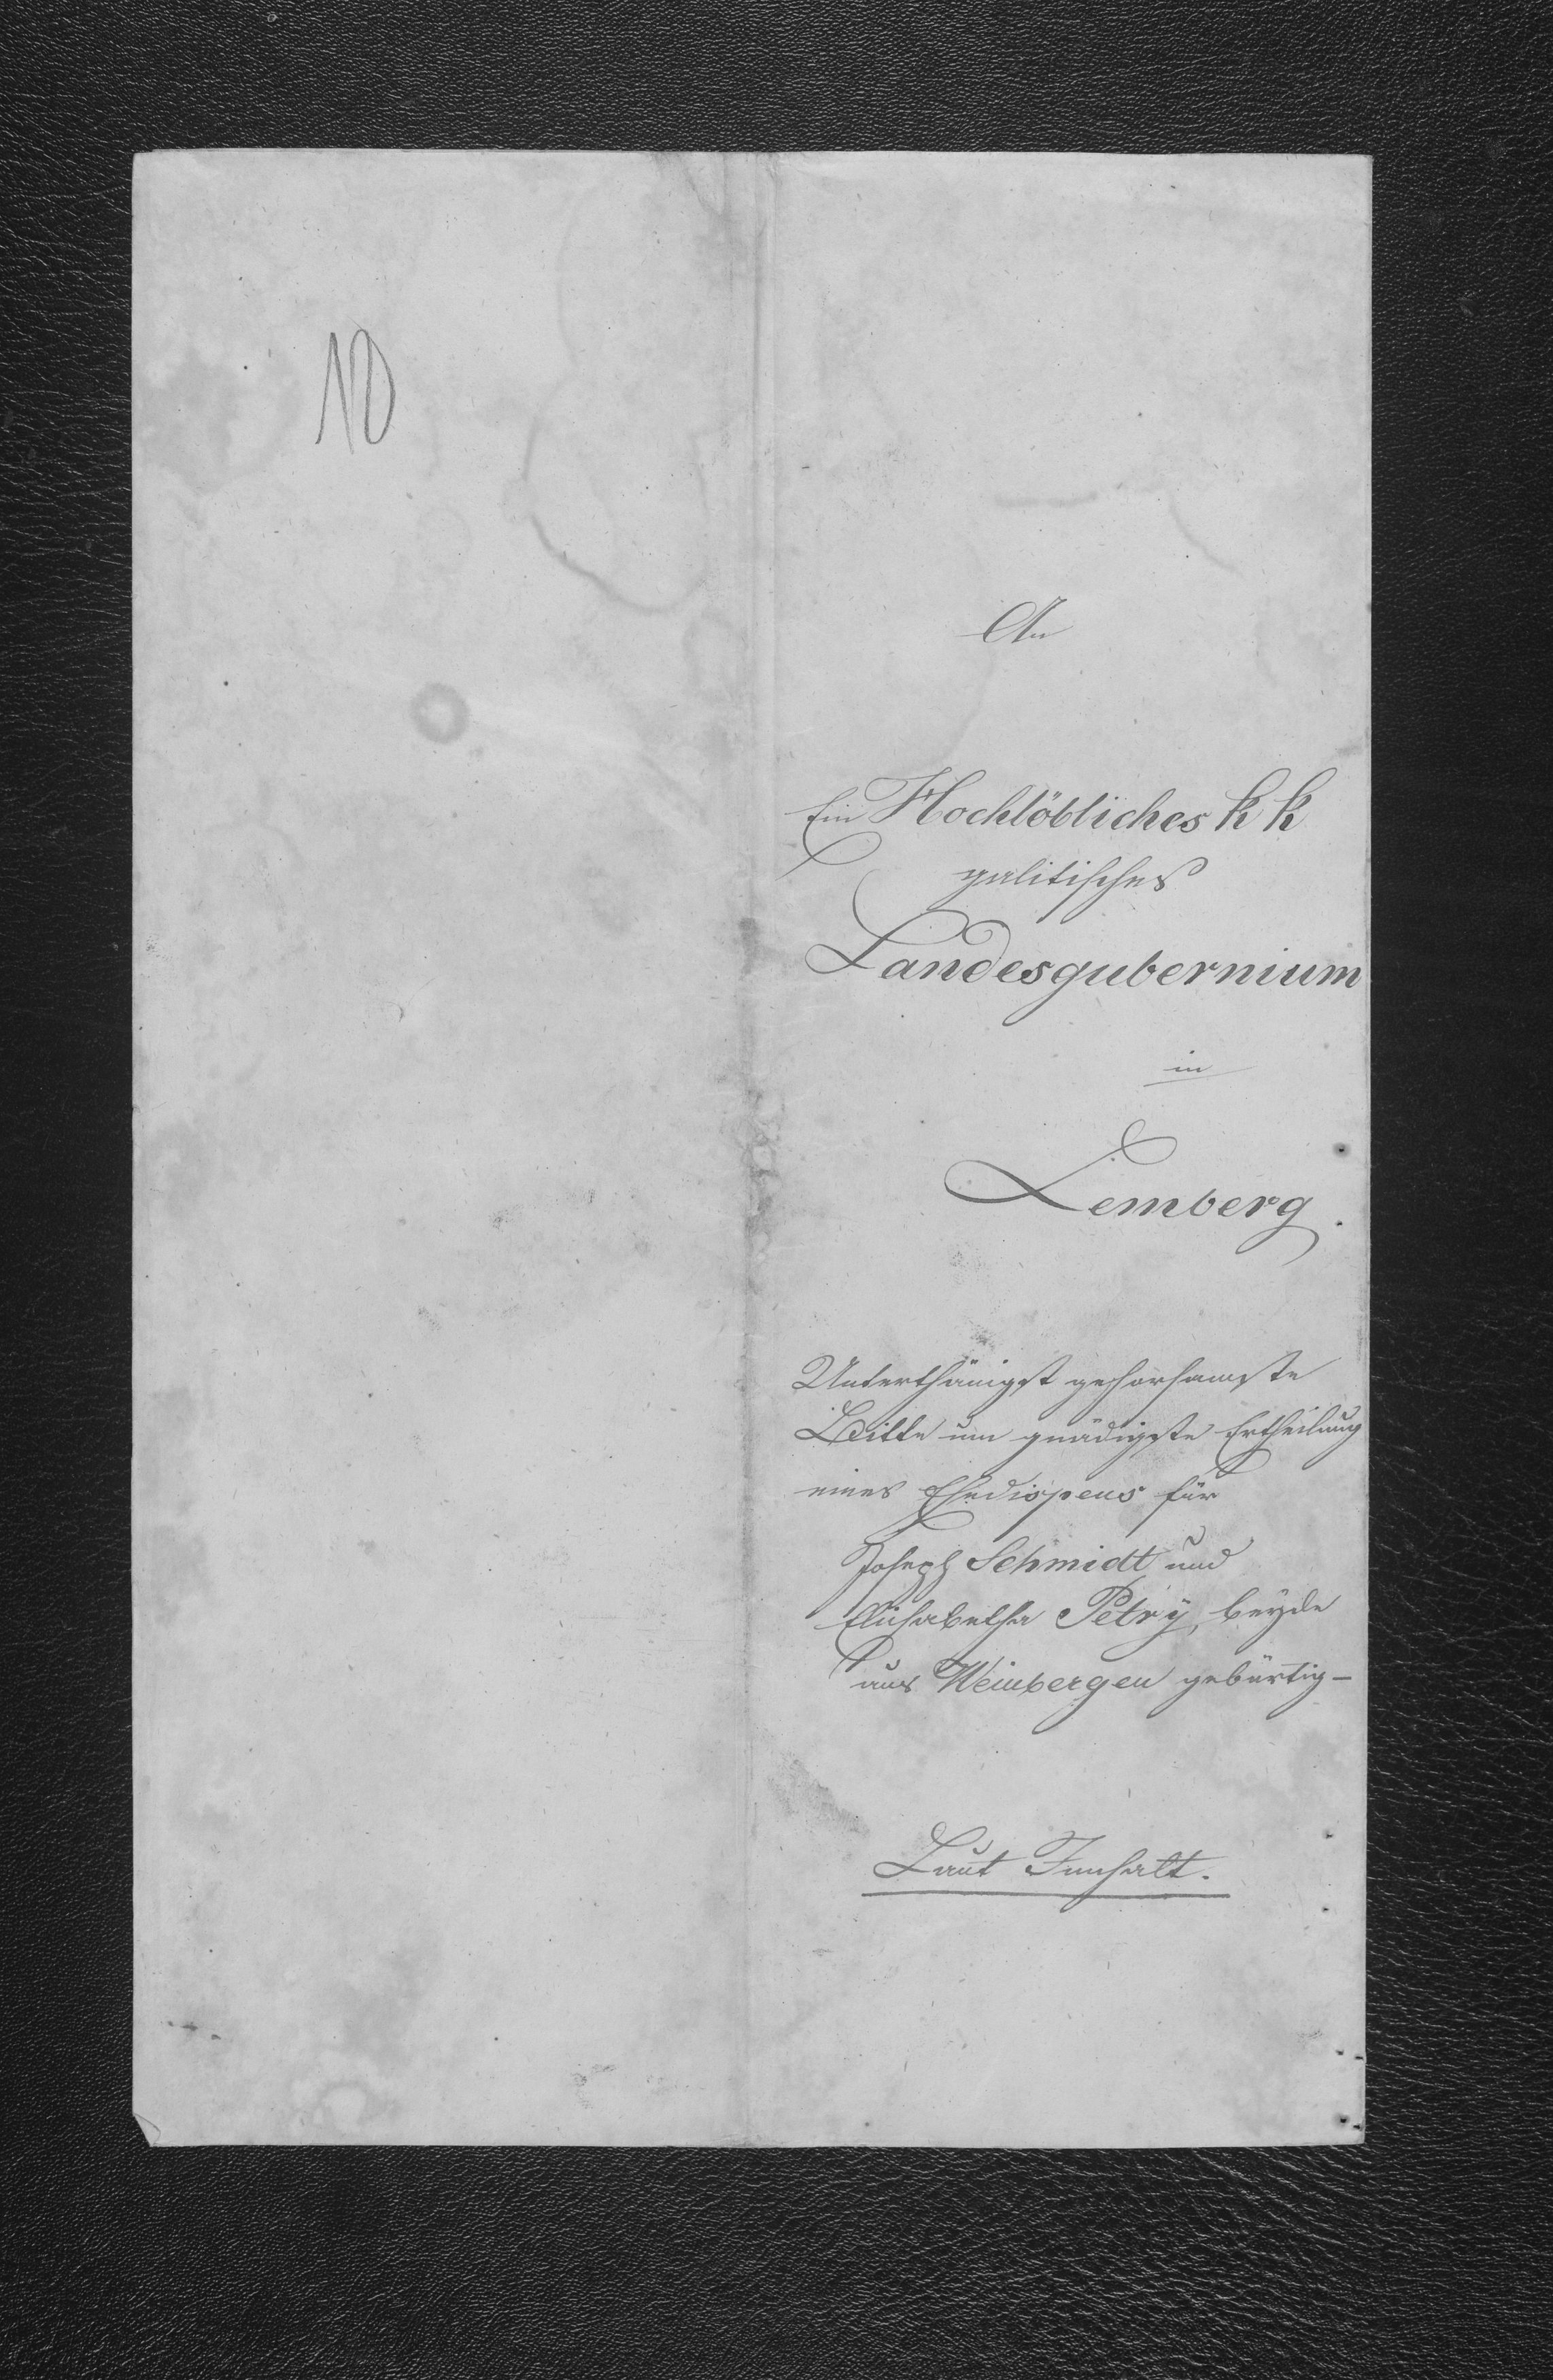 10
An
Ein Hochlöbliches k k
galitisches
Landesgubernium
in
Lemberg.
Unterthänigst gehorsamste
Bitte um gnädigste Ertheilung
eines Ehedispens für
Joseph Schmidt und
Elisabetha Petrÿ, beyde
aus Weinbergen gebürtig-
Laut Innhalt.